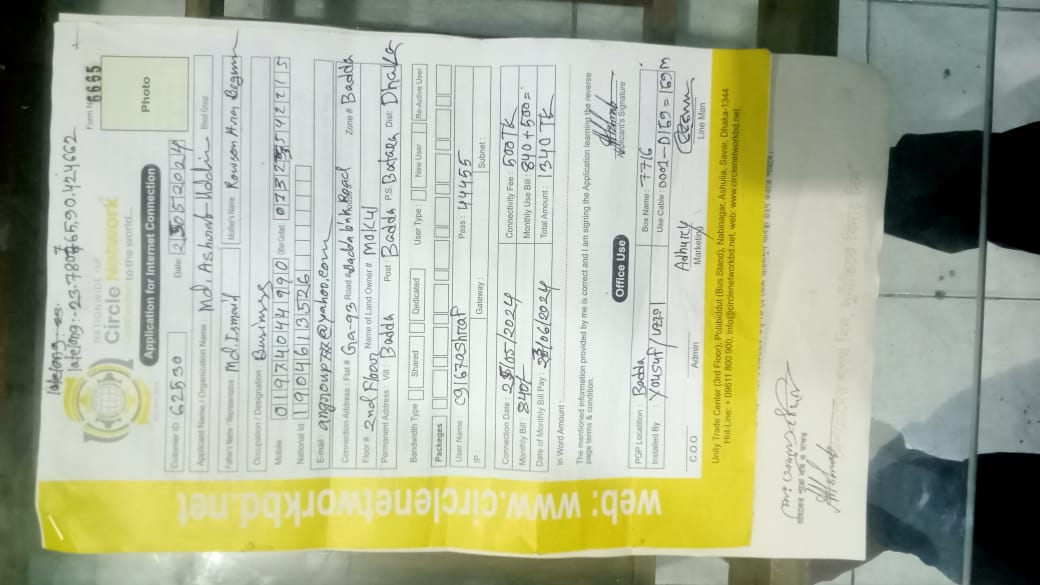 latelong:- 23.7807765,90.424662
NATIONWIDE ISP
Circle Network
Connecting to the world...
Form No 6665
Photo
Application for Internet Connection
Customer ID: 62530 Date: 25052024
Applicant Name / Organization Name Md. Ashrab Uddin Blood Group
Father's Name / Representative Md. Ismail Mother's Name Rowson Ara Begum
Occupation / Designation Business
Mobile: 01974044990
National Id: 1904613526
E-mail: @yahoo.com
Connection Address: Flat # Ga-93 Road # Badda link Road Zone # Badda
Floor # 2nd Floor Name of Land Owner #
Permanent Address: Vill: Badda Post: Badda P.S. Dist: Dhaka
Bandwidth Type Shared Dedicated User Type: New User Re-Active User
Packages
User Name: c9167ashraf Pass: 44455
IP: Gateway: Subnet:
Connection Date: 25/05/2024 Connectivity Fee: 500TK
Monthly Bill: 840/- Monthly Use Bill: 840+500=
Date of Monthly Bill Pay: /06/2024 Total Amount: 1340 TK
In Word Amount:
The mentioned information provided by me is correct and I am signing the Application learning the reverse
page terms & condition.
Applicant's Signature
Office Use
POP Location: Badda Box Name: 7716
Installed By: Yousuf/ Use Cable: 0001-0159=159m
C.O.O Admin Marketing Line Man
Unity Trade Center (3rd Floor), Pollibiddut (Bus Stand), Nabinagar, Ashulia, Savar, Dhaka-1344
Hot-Line: + 09611 800 900, info@circlenetworkbd.net, web: www.circlenetworkbd.net
web: www.circlenetworkbd.net